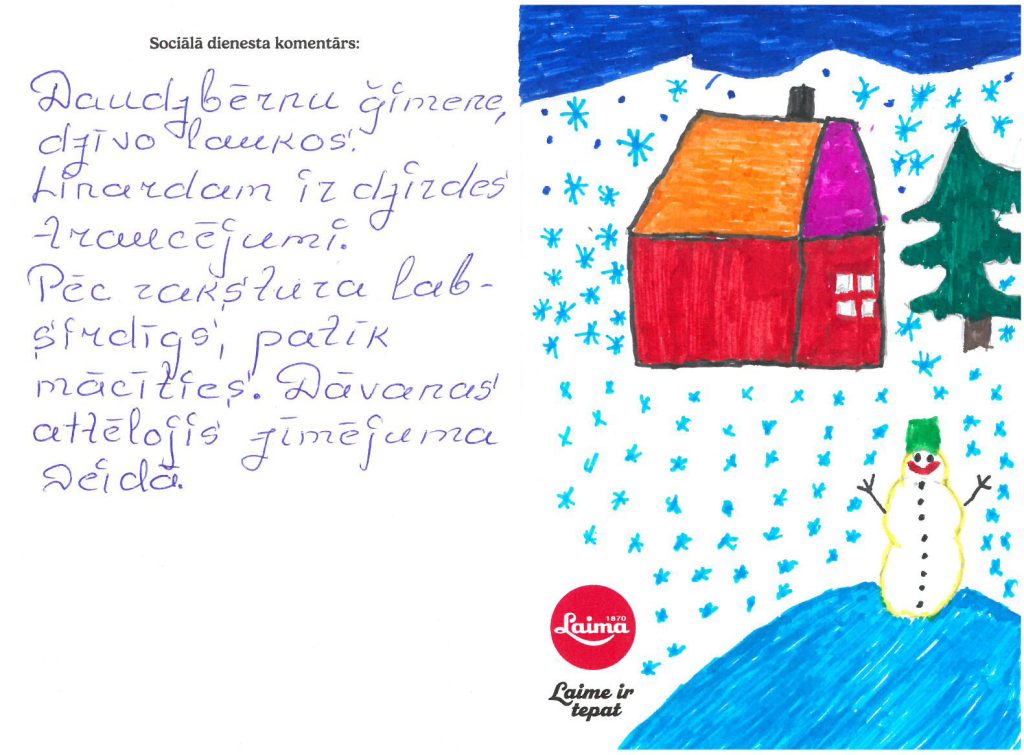 Sociālā dienesta komentārs:
Daudzbērnu ģimene,
dzīvo laukos.
Linardam ir dzirdes
traucējumi.
Pēc rakstura lab-
sirdīgs, patīk
mācīties. Dāvanas
attēlojis zīmējuma
veidā.
1870
Laima
Laime ir
tepat